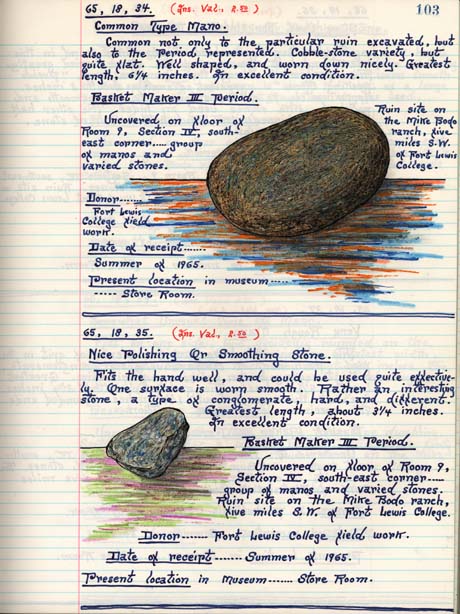 103
65, 18, 34. (Ins. Val., 2.50)
Common Type Mano.
Common not only to the particular ruin excavated, but
also to the Period represented. Cobble-stone variety, but
quite flat. Well shaped, and worn down nicely. Greatest
length, 6¼ inches. In excellent condition.
Basket Maker III Period.
Uncovered on floor of
Room 9, Section IV, south-
east corner..... group
of manos and
varied stones.
Ruin site on
the Mike Bodo
ranch, five
miles S.W.
of Fort Lewis
College.
Donor.......
Fort Lewis
College field
work.
Date of receipt.......
Summer of 1965.
Present location in museum.....
..... Store Room.
65, 18, 35. (Ins. Val., 2.50)
Nice Polishing Or Smoothing Stone.
Fits the hand well, and could be used quite effective-
ly. One surface is worn smooth. Rather an interesting
stone, a type of conglomerate, hard, and different.
Greatest length, about 3¼ inches.
In excellent condition.
Basket Maker III Period.
Uncovered on floor of Room 9,
Section IV, south-east corner.....
group of manos and varied stones.
Ruin site on the Mike Bodo ranch,
five miles S.W. of Fort Lewis College.
Donor..... Fort Lewis College field work.
Date of receipt....... Summer of 1965.
Present location in Museum....... Store Room.